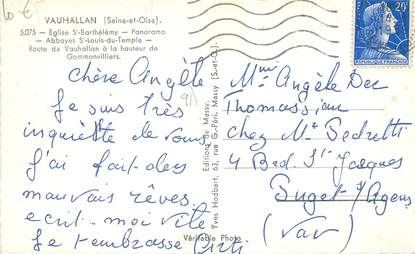 10 €
VAUHALLAN (Seine-et-Oise).
5.075 — Eglise St-Barthélémy — Panorama
— Abbayes St-Louis-du-Temple —
Route de Vauhallan à la hauteur de
Gommonvilliers.
chère Angèle
Je suis très
inquiète de vous
j'ai fait des
mauvais rêves
ecrit-moi vite
Je t'embrasse
Véritable Photo
Editions de Massy.
Yves Hadbart, 63, rue G.-Péri, Massy (S.-et-O.)
20F
Angèle
Thomassian
chez Mr
4 Bvd St Jacques
Puget s/Agens
(Var)